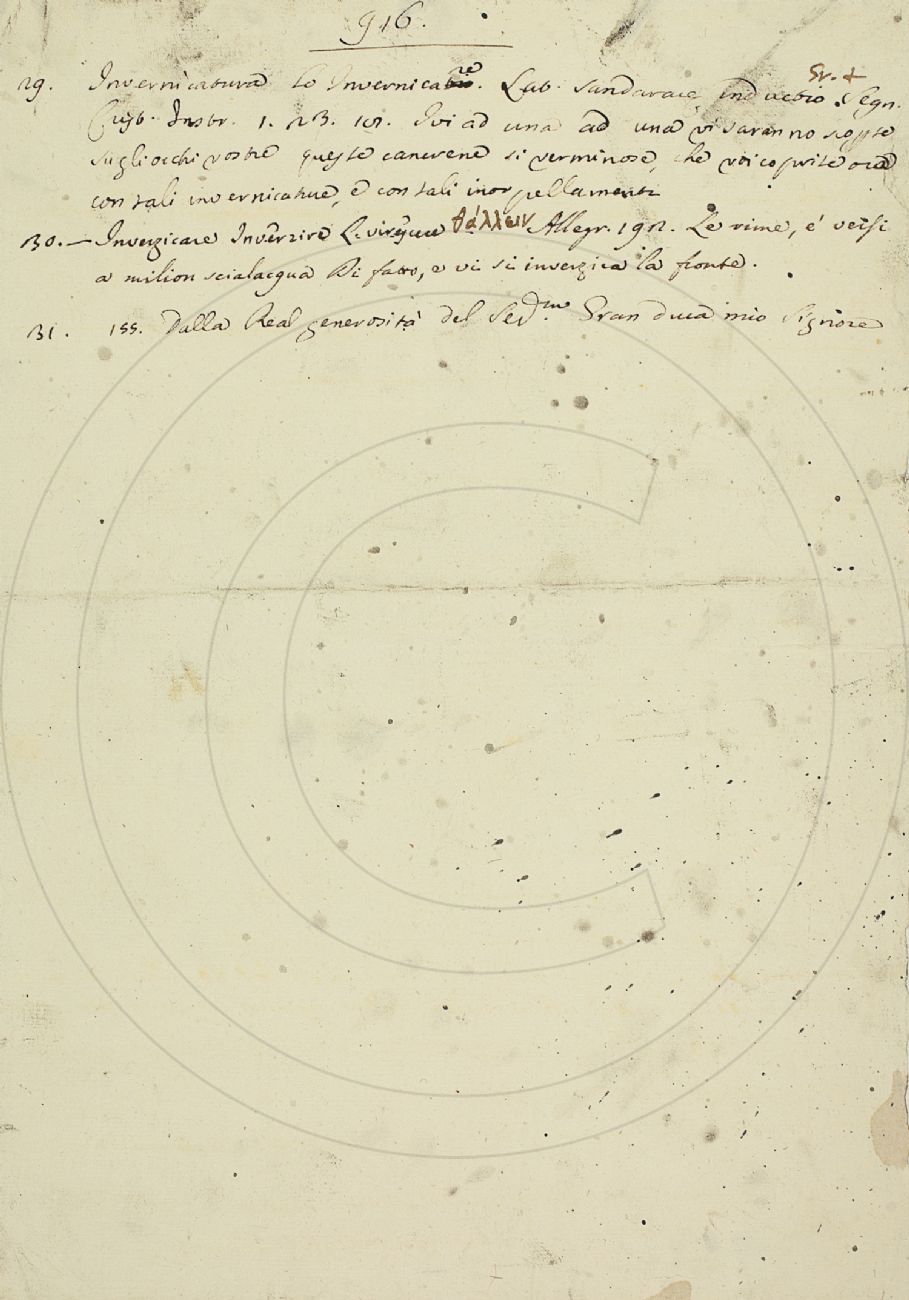 916.
29. Invernicatura lo Invernicare. Lat. sandaracæ inductio. Gr. + Segn.
Crist. Instr. 1. 23. 10. Ivi ad una ad una vi saranno poste
sugli occhi vostre queste cancrene sì verminose, che voi coprite ora
con tali invernicature, e con tali inorpellamenti
30. — Inverzicare Inverzire L. virescere θάλλειν Allegr. 192. Le rime, e versi
a milion scialacqua Di fatto, e vi si inverzica la fronte.
31. 155. Dalla Real generosità del Ser.mo Gran Duca mio Signore